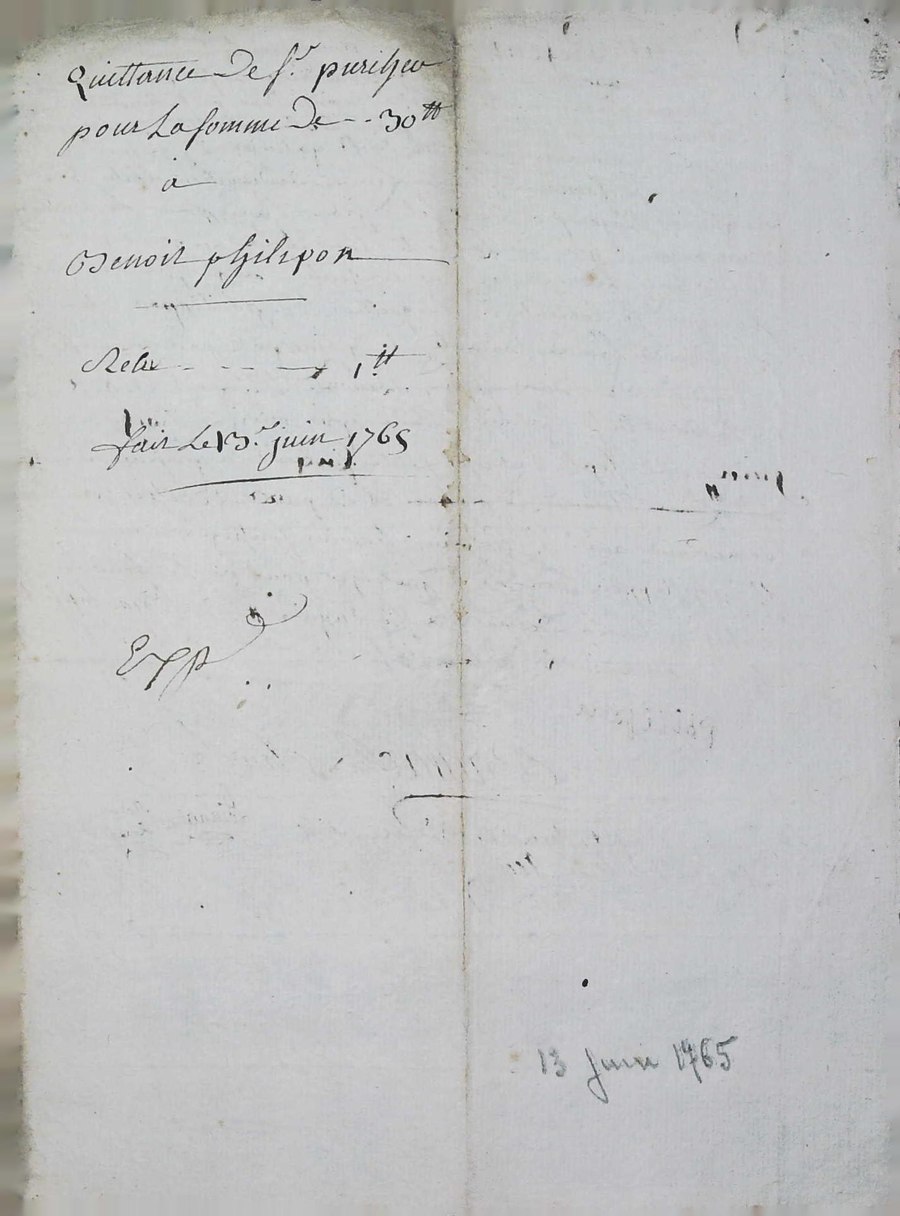 Quittance de Sr. 
pour La somme De -- 30 tt
a
Benoit philipon
Relu - - - - 1 tt
fait Le 13e juin 1765
Exp
13 Juin 1765